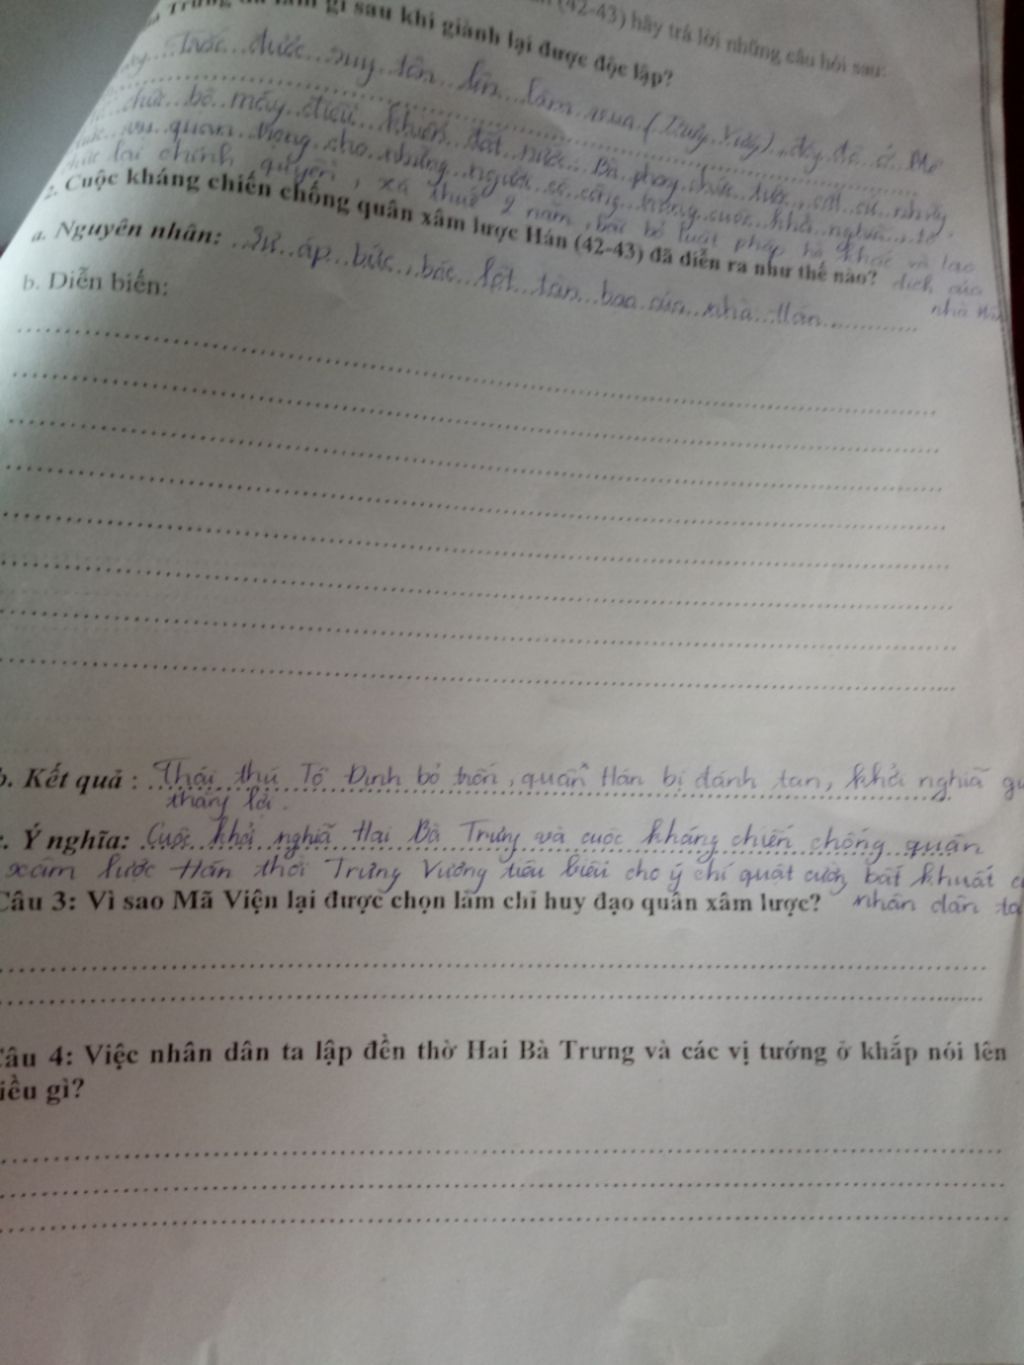 (42-43) hãy trả lời những câu hỏi sau:
Trưng đã làm gì sau khi giành lại được độc lập?
Trắc được suy tôn lên làm vua (Trưng Vương), đóng đô ở Mê
chức bộ máy điều khiển đất nước. Bà phong chức tước, cắt cử những
vụ quan trọng cho những người có công trong cuộc khởi nghĩa, tổ
chức lại chính quyền, xá thuế 2 năm, bãi bỏ luật pháp hà khắc và lao
2. Cuộc kháng chiến chống quân xâm lược Hán (42-43) đã diễn ra như thế nào? dịch của
nhà Hán
a. Nguyên nhân: Sự áp bức, bóc lột tàn bạo của nhà Hán
b. Diễn biến:
b. Kết quả : Thái thú Tô Định bỏ trốn, quân Hán bị đánh tan, khởi nghĩa
thắng lợi.
c. Ý nghĩa: Cuộc khởi nghĩa Hai Bà Trưng và cuộc kháng chiến chống quân
xâm lược Hán thời Trưng Vương tiêu biểu cho ý chí quật cường bất khuất
Câu 3: Vì sao Mã Viện lại được chọn làm chỉ huy đạo quân xâm lược? nhân dân ta
Câu 4: Việc nhân dân ta lập đền thờ Hai Bà Trưng và các vị tướng ở khắp nói lên
điều gì?